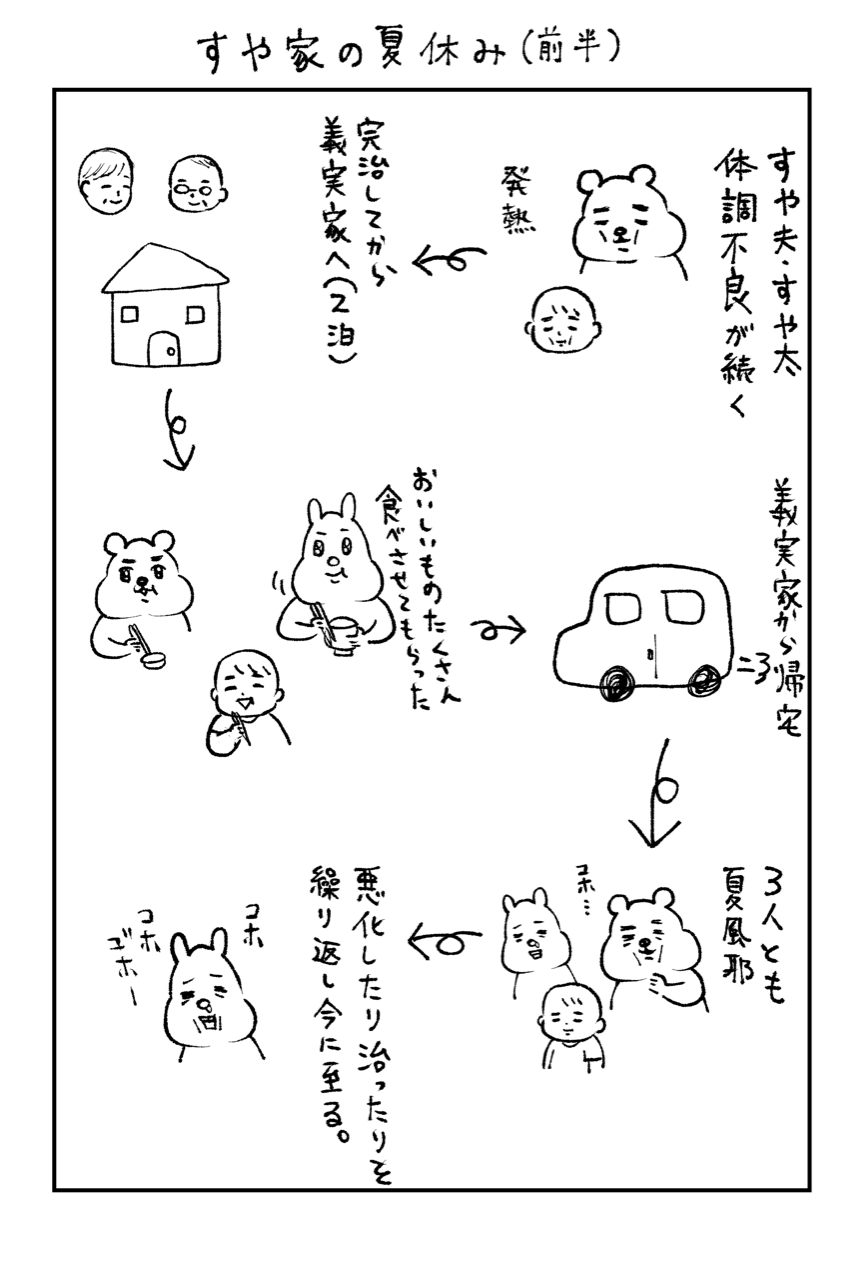 すや家の夏休み(前半)
すや夫・すや太
体調不良が続く
発熱
完治してから
義実家へ(2泊)
おいしいものたくさん
食べさせてもらった
義実家から帰宅
3人とも
夏風邪
コホ…
悪化したり治ったりを
繰り返し今に至る。
コホ
コホ
ゴホー